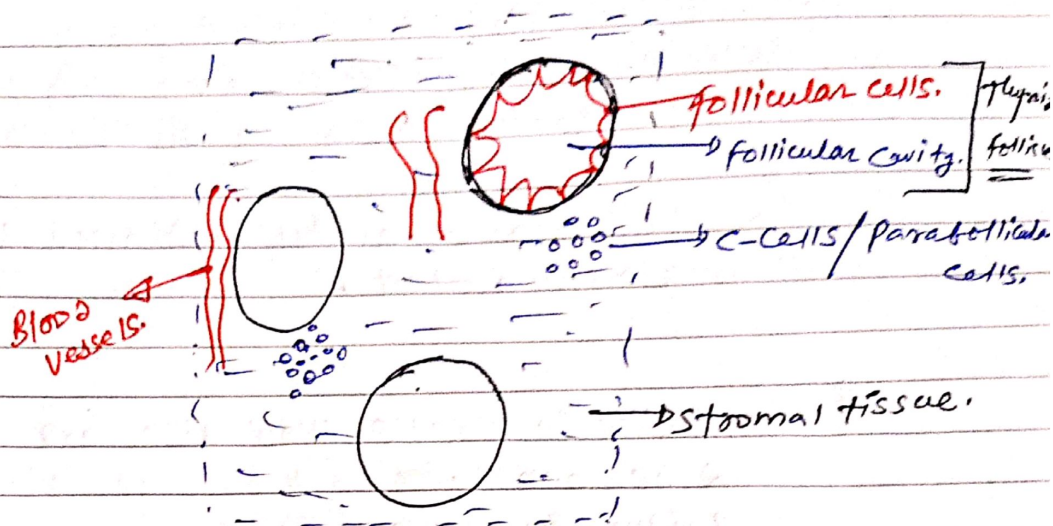 follicular cells.
follicular cavity.
C-cells/Parafollicula
cells.
Blood
vessels.
Stromal tissue.